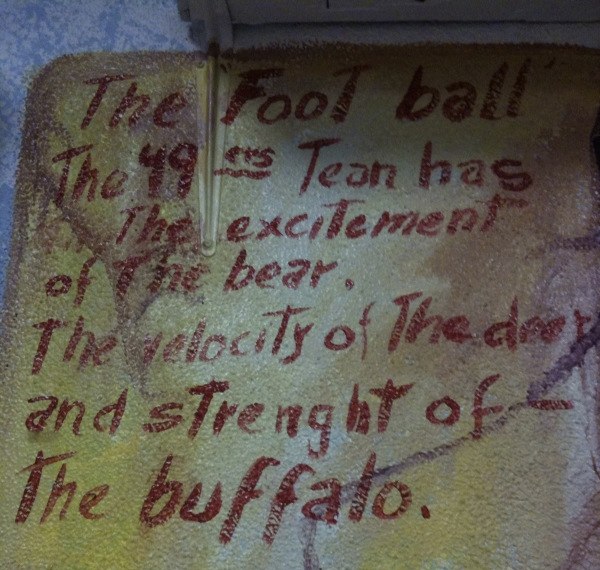 The Foot ball
The 49 ers Tean has
all The excitement
of The bear.
The velocity of The deer
and strenght of -
The buffalo.